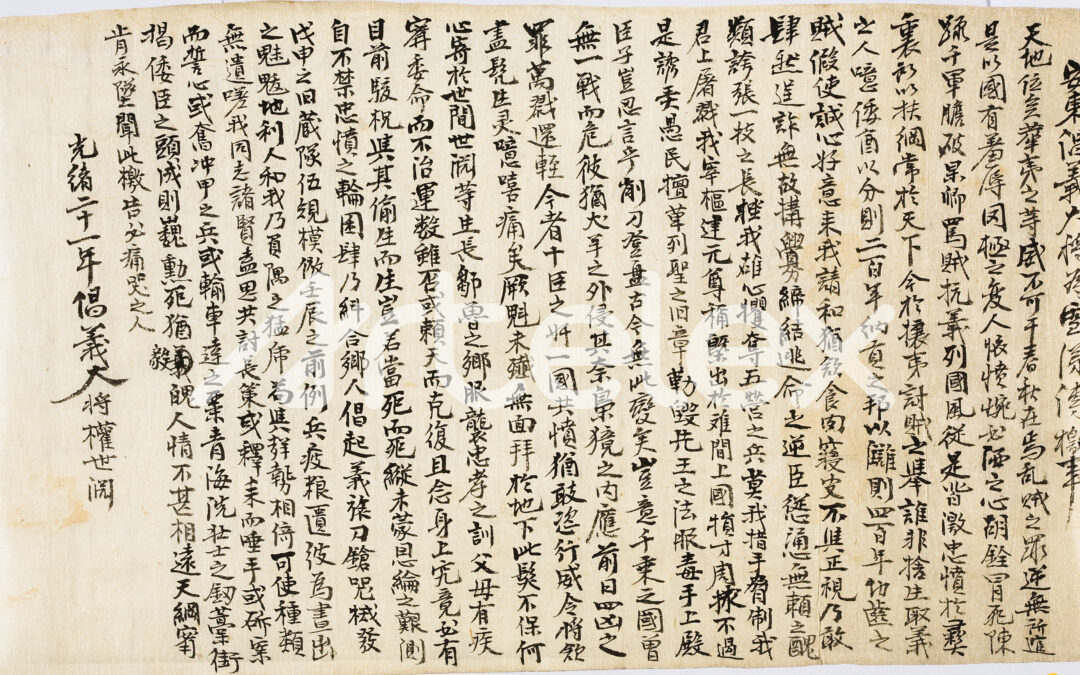 安東倡義大將爲雪深讐檄事
天地位矣華夷之等威不可干春秋在焉乱賊之罪逆無所逭
是以國有羞辱罔極之变人懷憤惋必洒之心胡銓冒死陳
疏千軍膽破杲卿罵賊抗義列國風從是皆激忠憤於彛
衷初以扶綱常於天下今於攘夷討賊之擧誰非捨生取義
之人噫倭酋以分則二百年納貢之邦以讎則四百年切齒之
賊假使誠心好意来我請和猶欲食肉寢皮不隹正視乃敢
肆然逞詐無故搆釁締結逃命之逆臣慫湧無頼之醜
類誇張一技之長挫我雄心攫奪五營之兵莫我措手脅制我
君上屠戮我宰樞建元尊称出於难間上國不過
是諺愚民擅革列聖之旧章勒毁先王之法服毒手上殿
臣子豈忍言乎削刀登盘古今無此變矣豈意千乘之國曾
無一戰而危彼猶犬羊之外侵其奈梟獍之内應前日四凶之
罪萬戮還輕今者十臣之奸一國共憤猶敢恣行威令將欲
盡髡生灵噫嘻痛矣厥魁未殲無面拜於地下此髮不保何
心寄於世間世淵等生長鄒魯之鄉服襲忠孝之訓父母有疾
寧委命而不治運数雖否或頼天而克復且念身上究竟必有
目前與其偷生而生豈若當死而死縱未蒙恩綸之艱測
自不禁忠憤之輪囷肆乃糾合鄉人倡起義旅刀鎗械發
戊甲之旧蔵隊伍規模倣壬辰之前例兵疲粮匱彼為晝出
之魅魃地利人和我乃負隅之猛虎為其相倚可使種類
無遺嗟我同志諸賢盍思共討長策或釋耒而唾手或斫案
而誓心或奮冲甲之兵或輸車達之粟青海洗壮士之釼藁街
揭倭臣之頭成則巍勳死猶毅魄人情不甚相遠天綱寧
肯永墜聞此檄告必痛哭之人
光緒二十一年倡義大將權世淵
Artelex